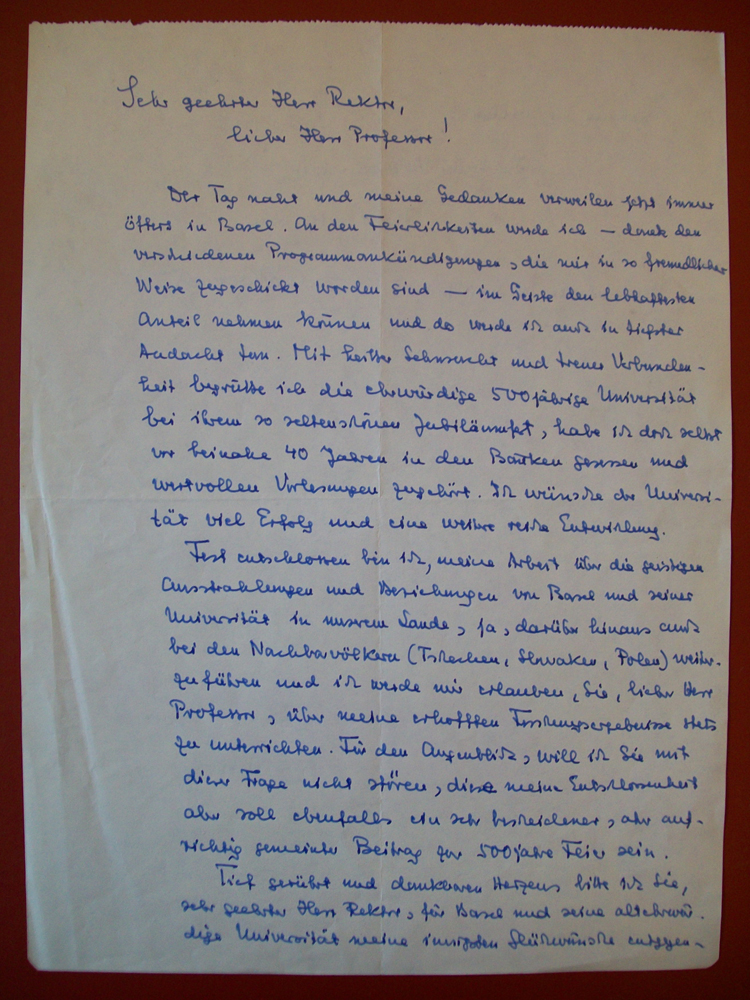 Sehr geehrter Herr Rektor,
lieber Herr Professor!
Der Tag naht und meine Gedanken verweilen jetzt immer
öfters in Basel. An den Feierlichkeiten werde ich — dank den
verschiedenen Programmankündigungen, die mir in so freundlicher
Weise zugeschickt worden sind — im Geiste den lebhaftesten
Anteil nehmen können und das werde ich auch in tiefster
Andacht tun. Mit heisser Sehnsucht und treuer Verbunden-
heit begrüsse ich die ehrwürdige 500jährige Universität
bei ihrem so seltenschönen Jubiläumsfest, habe ich doch selbst
vor beinahe 40 Jahren in den Bänken gesessen und
wertvollen Vorlesungen zugehört. Ich wünsche der Universi-
tät viel Erfolg und eine weitere reiche Entwicklung.
Fest entschlossen bin ich, meine Arbeit über die geistigen
Ausstrahlungen und Beziehungen von Basel und seiner
Universität in unserem Lande, ja, darüber hinaus auch
bei den Nachbarvölkern (Tschechen, Slowaken, Polen) weiter-
zuführen und ich werde mir erlauben, Sie, lieber Herr
Professor, über meine erhofften Forschungsergebnisse stets
zu unterrichten. Für den Augenblick, will ich Sie mit
dieser Frage nicht stören, diese meine Entschlossenheit
aber soll ebenfalls ein sehr bescheidener, aber auf-
richtig gemeinter Beitrag zur 500jahre Feier sein.
Tief gerührt und dankbaren Herzens bitte ich Sie,
sehr geehrter Herr Rektor, für Basel und seine altehrwür-
dige Universität meine innigsten Glückwünsche entgegen-